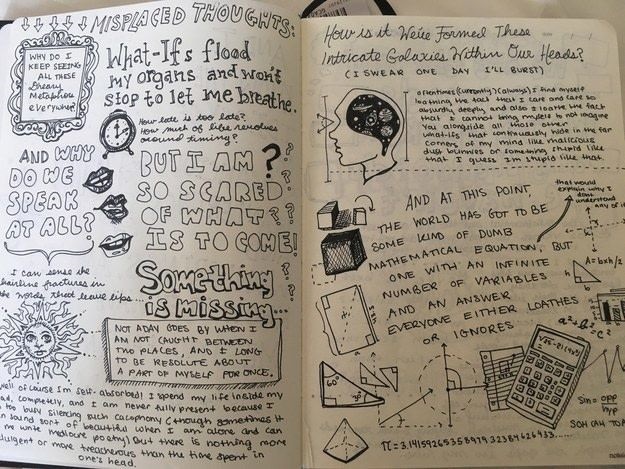 MISPLACED THOUGHTS:
WHY DO I
KEEP SEEING
ALL THESE
Dreary
Metaphors
Everywhere?
What-Ifs flood
my organs and won't
stop to let me breathe.
How late is too late?
How much of life revolves
around timing?
AND WHY
DO WE
SPEAK
AT ALL?
BUT I AM ?
SO SCARED
OF WHAT??
IS TO COME!
I can sense the
hairline fractures in
the words that leave lips...
Something
is missing...
NOT A DAY GOES BY WHEN I
AM NOT CAUGHT BETWEEN
TWO PLACES, AND I LONG
TO BE RESOLUTE ABOUT
A PART OF MYSELF FOR ONCE.
Well of course I'm self-absorbed! I spend my life inside my
head, completely, and I am never fully present because I
too busy silencing such cacophony (though sometimes it
can sound sort of beautiful when I am alone and can
me write mediocre poetry) but there is nothing more
indulgent or more treacherous than the time spent in
one's head.
How is it We've Formed These
Intricate Galaxies Within Our Heads?
(I SWEAR ONE DAY I'LL BURST)
oftentimes (currently) (always) I find myself
loathing the fact that I care and care so
absurdly deeply, and also I loathe the fact
that I cannot bring myself to not imagine
you alongside all those other
what-ifs that continuously hide in the far
corners of my mind like malicious
dust bunnies or something stupid like
that I guess I'm stupid like that.
AND AT THIS POINT,
THE WORLD HAS GOT TO BE
SOME KIND OF DUMB
MATHEMATICAL EQUATION, BUT
ONE WITH AN INFINITE
NUMBER OF VARIABLES
AND AN ANSWER
EVERYONE EITHER LOATHES
OR IGNORES
that would
explain why I
don't
understand
any of it
A=bxh/2
h
b
a²+b²=c²
60°
sin= opp
hyp
SOH CAH TOA
π=3.14159265358979323846264 33......